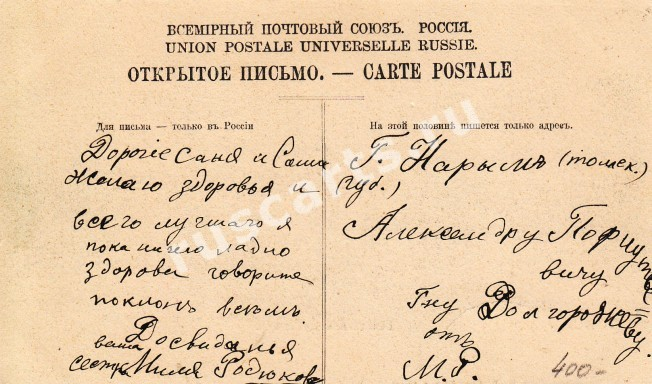 ВСЕМІРНЫЙ ПОЧТОВЫЙ СОЮЗЪ. РОССІЯ.
UNION POSTALE UNIVERSELLE RUSSIE.
ОТКРЫТОЕ ПИСЬМО. — CARTE POSTALE
Для письма — только въ Россіи
Дорогіе Саня и Саша
Желаю здоровья и
всего лучшаго я
пока ничего ладно
здорова говорите
поклонъ всѣмъ.
Досвиданья
ваша
сестра Миля Родюкова
На этой половинѣ пишется только адресъ.
Г. Нарымъ (томск.
губ.)
Александру Пафнуть
вичу
Гну Долгорукову.
отъ
М.Р.
400-
ruscarts.ru